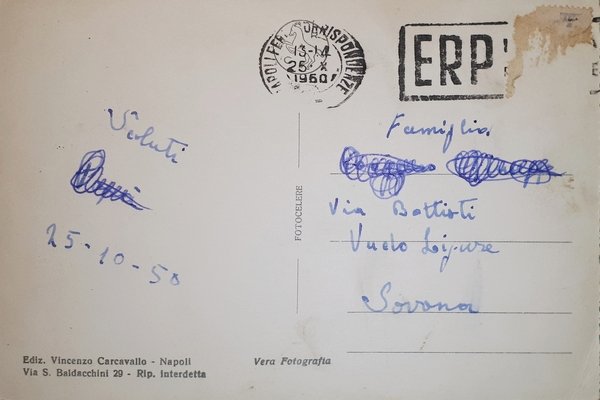 NAPOLI FERR. CORRISPONDENZE
13-14
25 X
1950
ERP
Saluti
25-10-50
Famiglia
Via Battisti
Vado Ligure
Savona
FOTOCELERE
Ediz. Vincenzo Carcavallo - Napoli
Via S. Baldacchini 29 - Rip. Interdetta
Vera Fotografia